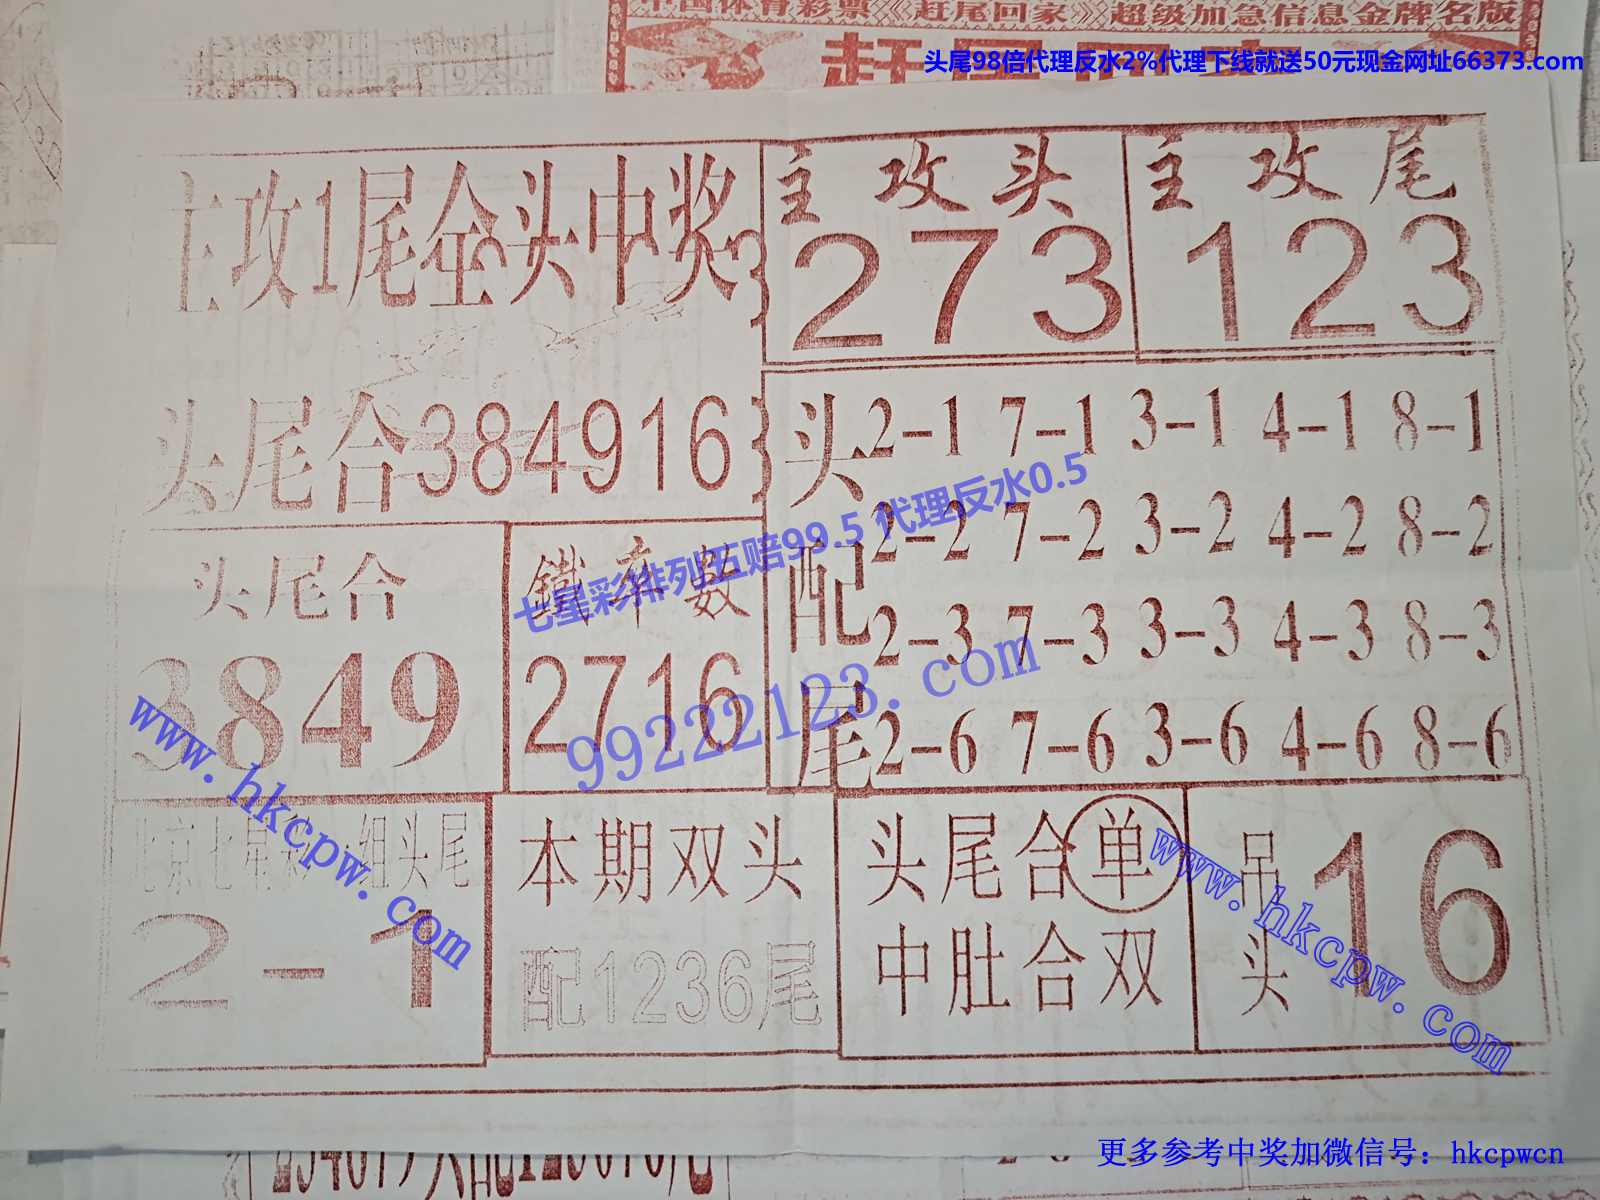 中国体育彩票《赶尾回家》超级加急信息金牌名版
头尾98倍代理反水2%代理下线就送50元现金网址66373.com
主攻1尾全头中奖
主攻头
273
主攻尾
123
头尾合384916
头尾合
3849
鐵率數
2716
头配尾
2-1 7-1 3-1 4-1 8-1
2-2 7-2 3-2 4-2 8-2
2-3 7-3 3-3 4-3 8-3
2-6 7-6 3-6 4-6 8-6
七星彩排列五赔99.5 代理反水0.5
99222123.com
www.hkcpw.com
北京七星彩一组头尾
2-1
本期双头
配1236尾
头尾合单
中肚合双
吊头
16
www.hkcpw.com
更多参考中奖加微信号：hkcpwcn